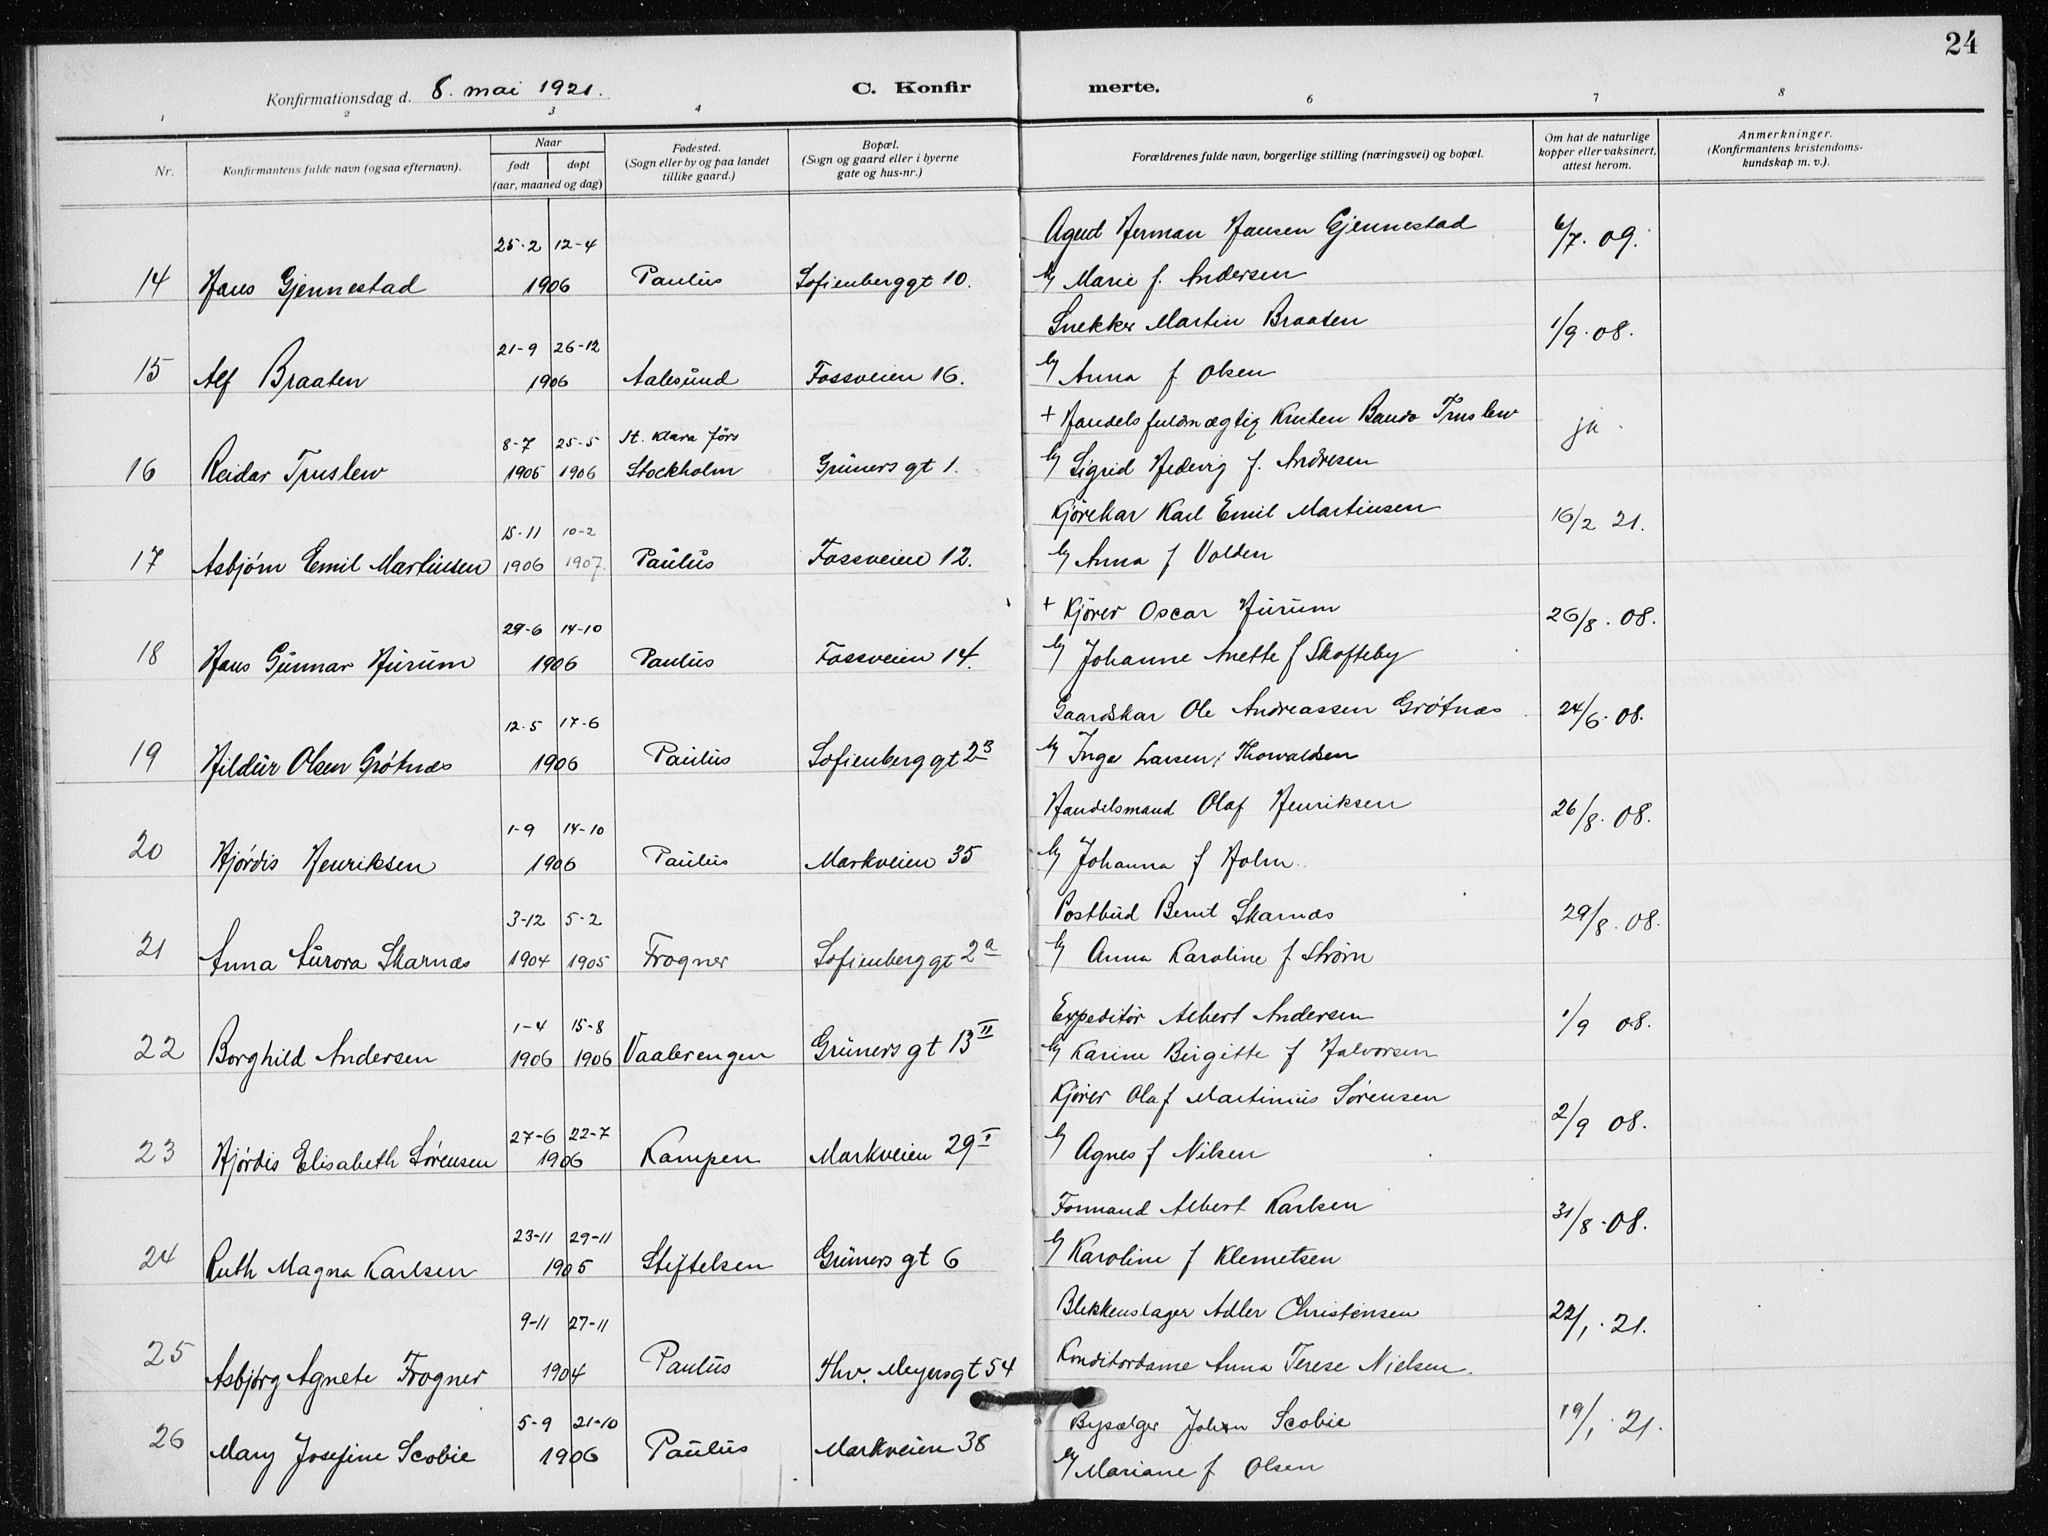 24
Konfirmationsdag d. 8. mai 1921. C. Konfir merte.
1 2 3 4 6 7 8
Nr. Konfirmantens fulde navn (ogsaa efternavn). Naar født døpt (aar, maaned og dag) Fødested. (Sogn eller by og paa landet tillike gaard.) Bopæl. (Sogn og gaard eller i byerne gate og hus-nr.) Forældrenes fulde navn, borgerlige stilling (næringsvei) og bopæl. Om hat de naturlige kopper eller vaksinert, attest herom. Anmerkninger. (Konfirmantens kristendoms-kundskap m. v.).
25-2 12-4 Herman Hansen Gjennestad 6/7. 09.
14 Hans Gjennestad 1906 Paulus Sofienberggt 10. Marie f. Andersen
21-9 26-12 Snekker Martin Braaten 1/9. 08.
15 Alf Braaten 1906 Aalesund Fossveien 16. Anna f Olsen
8-7 25-5 St. Klara förs + Handelsfuldmægtig Truslew ja
16 Reidar Truslew 1905 1906 Stockholm Grüners gt 1. Sigrid Hedevig f. Andresen
15-11 10-2 Kjørekar Karl Emil Martinsen 16/2 21.
17 Asbjørn Emil Martinsen 1906 1907. Paulus Fossveien 12. Anna f Volden
29-6 14-10 + Kjører Oscar Hurum 26/8. 08.
18 Hans Gunnar Hurum 1906 Paulus Fossveien 14. Johanne Anette f Skofteby
12-5 17-6 Gaardskar Ole Andreassen Grøtnæs 24/6. 08.
19 Hildur Olsen Grøtnæs 1906 Paulus Sofienberg gt 2B Inga Larsen, Thorvaldsen
1-9 14-10 Handelsmand Olaf Henriksen 26/8. 08.
20 Hjørdis Henriksen 1906 Paulus Markveien 35 Johanna f Holm
3-12 5-2 Postbud Bernt Skarnæs 29/8. 08.
21 Anna Aurora Skarnæs 1904 1905 Frogner Sofienberg gt 2a Anna Karoline f Strøm
1-4 15-8 Expeditør Albert Andersen 1/9 08.
22 Borghild Andersen 1906 1906 Vaalerengen Grüners gt 13 II Karine Birgitte f Halvorsen
27-6 22-7 Kjører Olaf Martinius Sørensen 2/9 08.
23 Hjørdis Elisabeth Sørensen 1906 Kampen Markveien 29 I Agnes f Nilsen
23-11 29-11 Formand Albert Karlsen 31/8. 08.
24 Ruth Magna Karlsen 1905 Stiftelsen Grüners gt 6 Karoline f Klemetsen
9-11 27-11 Blikkenslager Adler Christensen 22/1. 21.
25 Asbjørg Agnete Frogner 1904 Paulus Thv. Meyersgt 54 Konditordame Anna Terese Nielsen.
5-9 21-10 Bysælger Johan Scobie 19/1. 21.
26 Mary Josefine Scobie 1906 Paulus Markveien 38 Mariane f Olsen